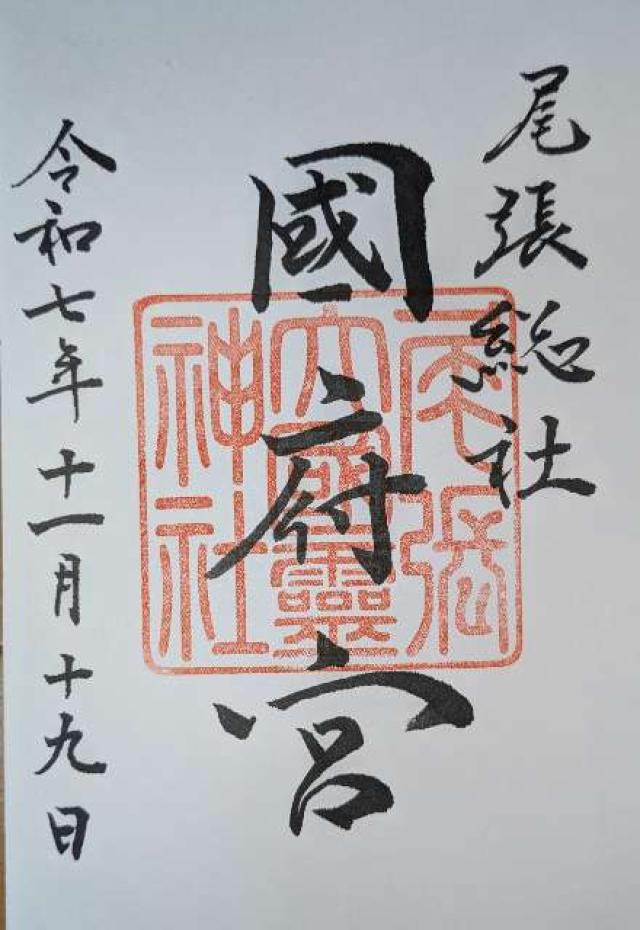 尾張総社
國府宮
尾張
大國霊
神社
令和七年十一月十九日